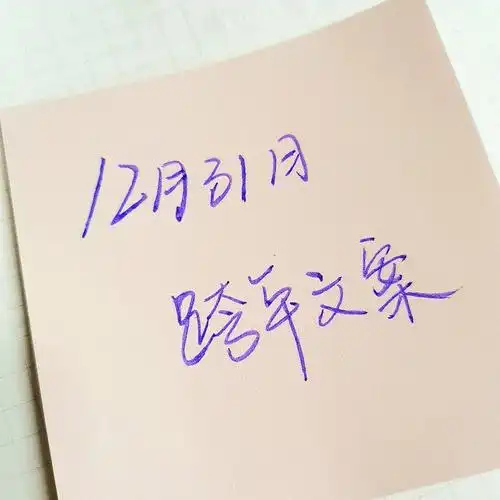 12月31月
跨年文案